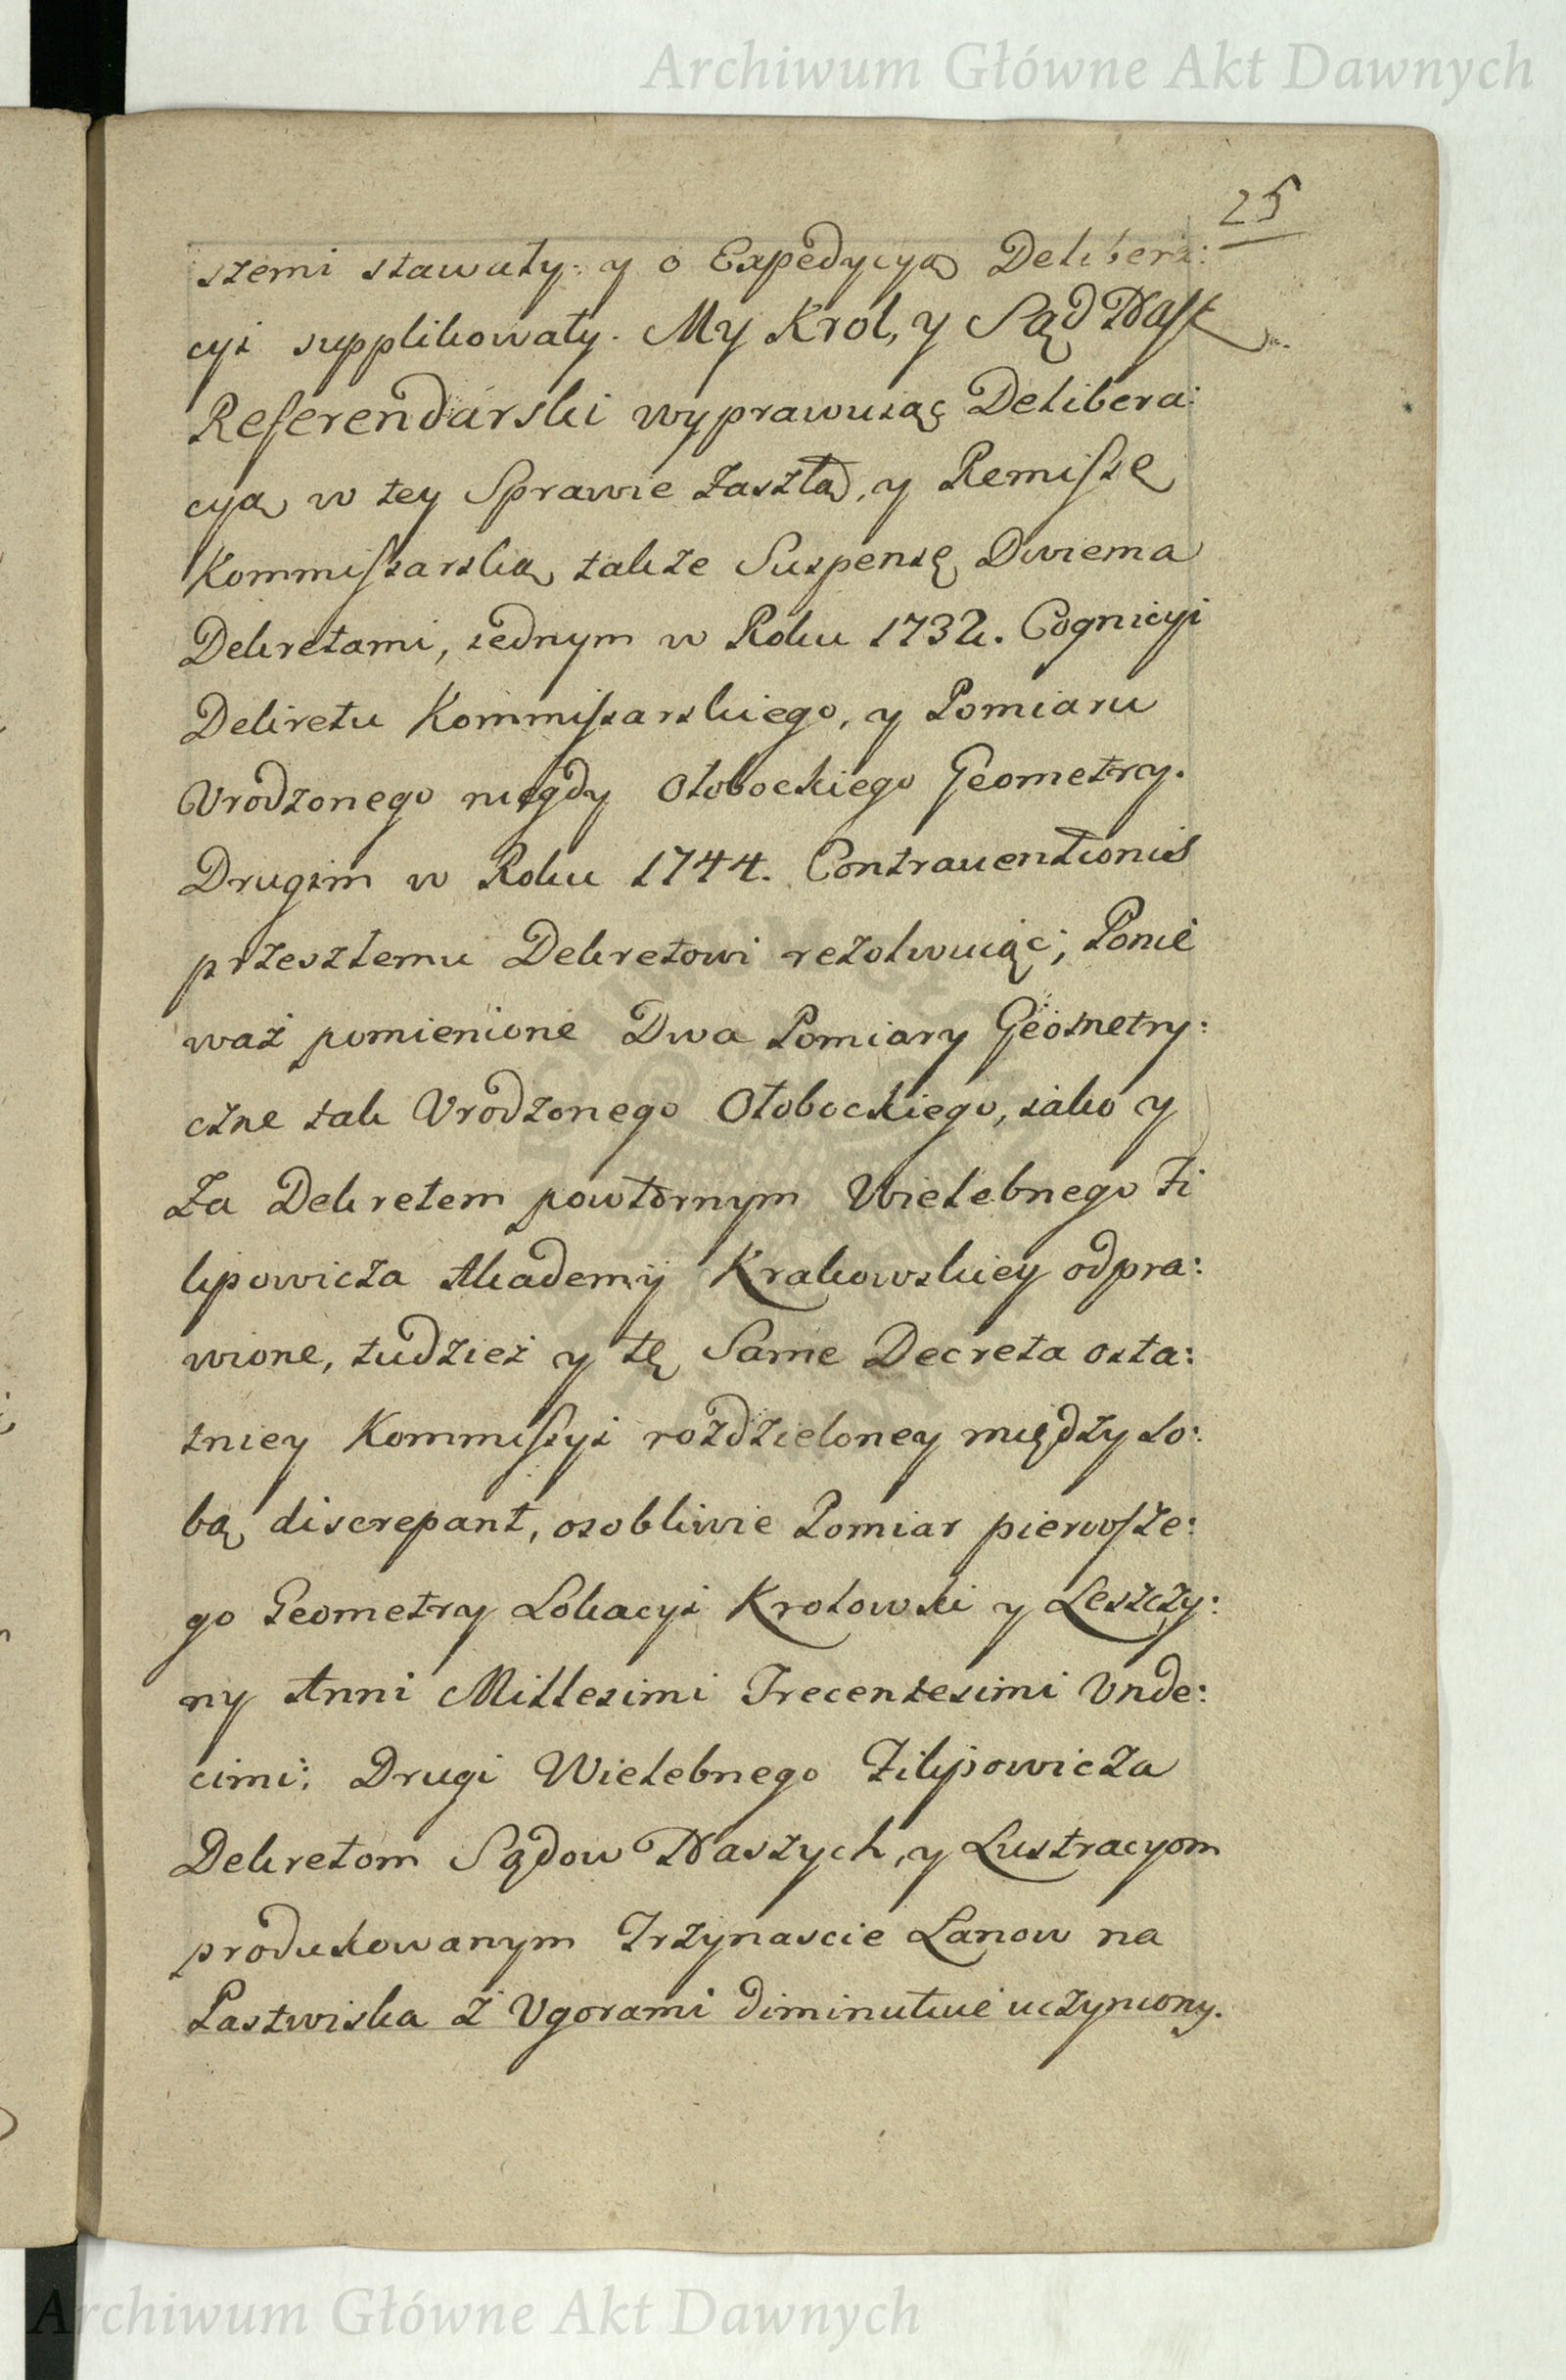 Archiwum Główne Akt Dawnych
25
szemi stawały. y o Expedycyą Delibera:
cyi supplikowały. My Krol, y Sąd Nasz
Referendarski wyprawuiąc Delibera:
cyą w tey Sprawie zaszłą, y Remiſsę
Kommiſsarską także Suspensę Dwiema
Dekretami, iednym w Roku 1732. Cognicyi
Dekretu Kommiſsarskiego, y Pomiaru
Vrodzonego niegdy Ołobockiego Geometry.
Drugim w Roku 1744. Contrauentionis
przeszłemu Dekretowi rezolwuiąc; Ponie
waż pomienione Dwa Pomiary Geometry:
czne tak Vrodzonego Ołobockiego, iako y
za Dekretem powtornym Wielebnego Fi
lipowicza Akademij Krakowskiey odpra:
wione, tudzież y tę Same Decreta osta:
tniey Kommiſsyi rozdzieloney między so:
bą discrepant, osobliwie Pomiar pierwſze:
go Geometry Lokacyi Krolowski y Leszczy:
ny Anni Millesimi Trecentesimi Vnde:
cimi; Drugi Wielebnego Filipowicza
Dekretom Sądow Naszych, y Lustracyom
produkowanym Trzynascie Lanow na
Pastwiska z Vgorami diminutiue uczyniony.
Archiwum Główne Akt Dawnych